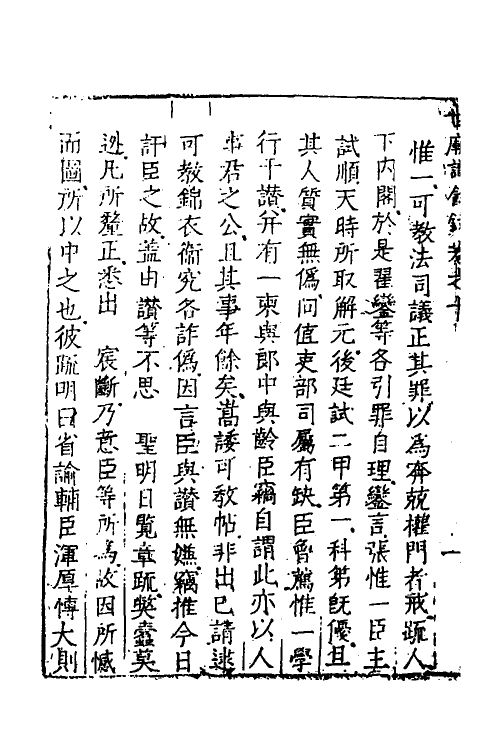 世廟識餘錄卷之十
惟一可教法司議正其罪以爲奔兢權門者戒䟽入
下内閣於是翟鑾等各引罪自理鑾言張惟一臣主
試順天時所取解元後廷試二甲第一科第旣優且
其人質實無僞向值吏部司屬有缺臣魯薦惟一學
行于讃并有一柬與郎中與齡臣竊自謂此亦以人
事君之公且其事年餘矣嵩諉可教帖非出巳請逮
可教錦衣衞究各詐僞因言臣與讃無嫌竊推今日
訐臣之故盖由讃等不思 聖明日覧章䟽奬蠧莫
逃凡所釐正悉出 宸斷乃意臣等所爲故因所憾
而圖所以中之也彼䟽明曰省諭輔臣渾厚愽大則
一